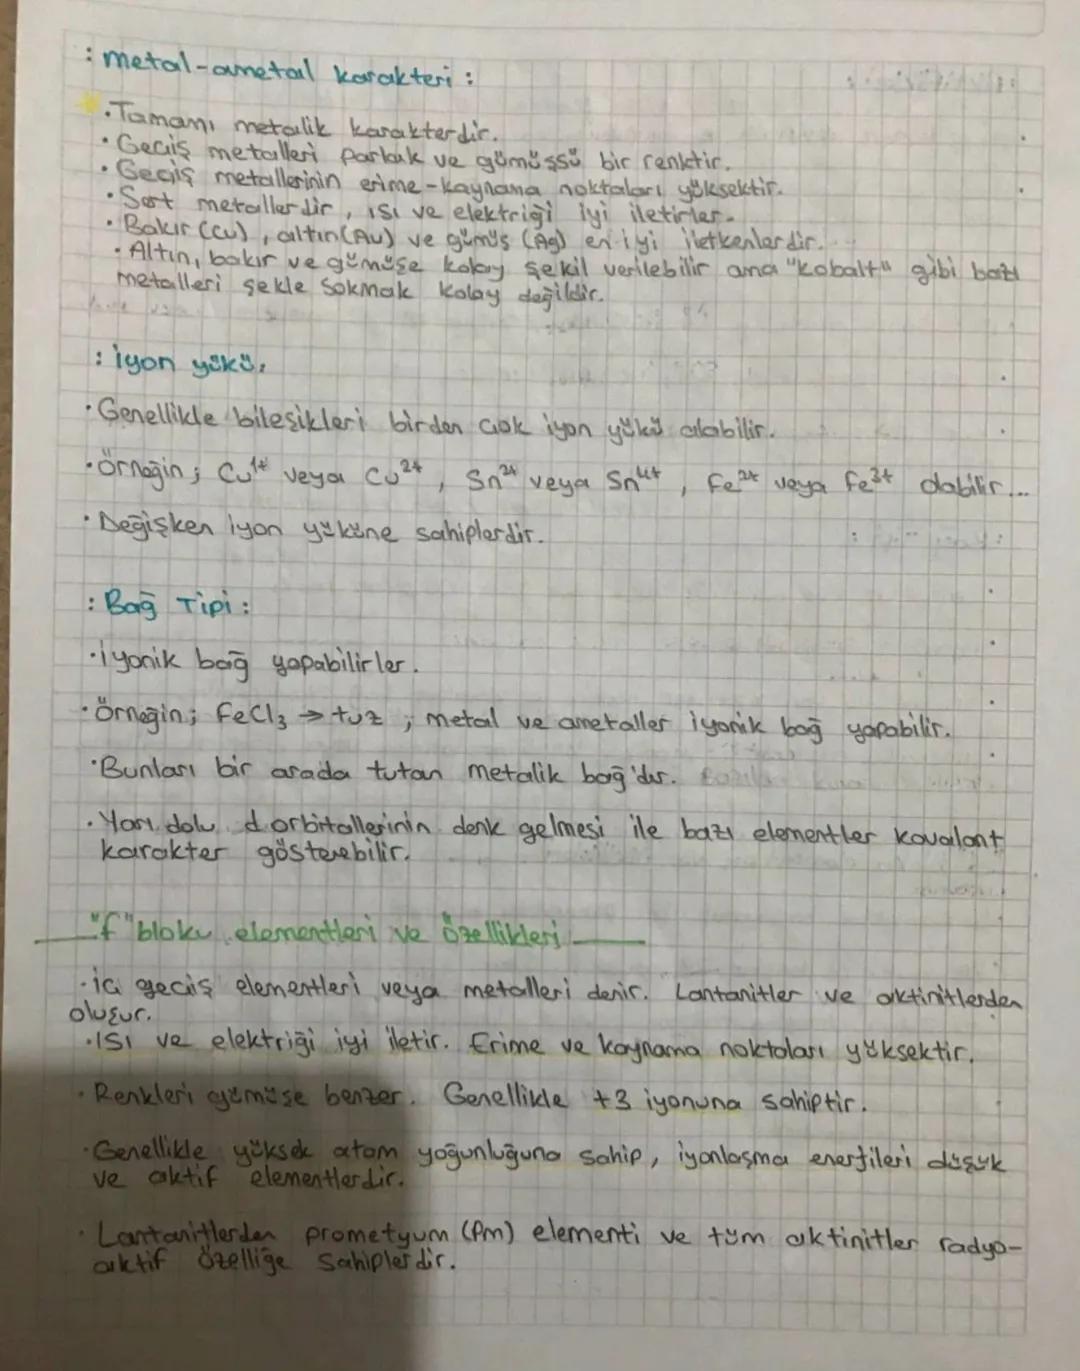 : Metal-ametal karakteri :
· Tamamı metalik karakterdir.
· Geçiş metalleri parlak ve gümüşsü bir renktir.
· Geçiş metallerinin erime-kaynama noktaları yüksektir.
· Sert metallerdir, ısı ve elektriği iyi iletirler.
· Bakır (Cu), altın(Au) ve gümüş (Ag) en iyi iletkenlerdir.
· Altın, bakır ve gümüşe kolay şekil verilebilir ama "kobalt" gibi bazı
metalleri şekle sokmak kolay değildir.
: İyon yükü:
· Genellikle bileşikleri birden çok iyon yükü alabilir.
· Örneğin; Cu¹⁺ veya Cu²⁺, Sn²⁺ veya Sn⁴⁺, Fe²⁺ veya Fe³⁺ olabilir...
· Değişken iyon yüküne sahiplerdir.
: Bağ Tipi :
· İyonik bağ yapabilirler.
· Örneğin; FeCl₃ → tuz ; metal ve ametaller iyonik bağ yapabilir.
· Bunları bir arada tutan metalik bağ'dır.
· Yarı dolu d orbitallerinin denk gelmesi ile bazı elementler kovalant
karakter gösterebilir.
"f" bloku elementleri ve Özellikleri
· İç geçiş elementleri veya metalleri denir. Lantanitler ve aktinitlerden
oluşur.
· Isı ve elektriği iyi iletir. Erime ve kaynama noktaları yüksektir.
· Renkleri gümüşe benzer. Genellikle +3 iyonuna sahiptir.
· Genellikle yüksek atom yoğunluğuna sahip, iyonlaşma enerjileri düşük
ve aktif elementlerdir.
· Lantanitlerden prometyum (Pm) elementi ve tüm aktinitler radyo-
aktif özelliğe sahiplerdir.